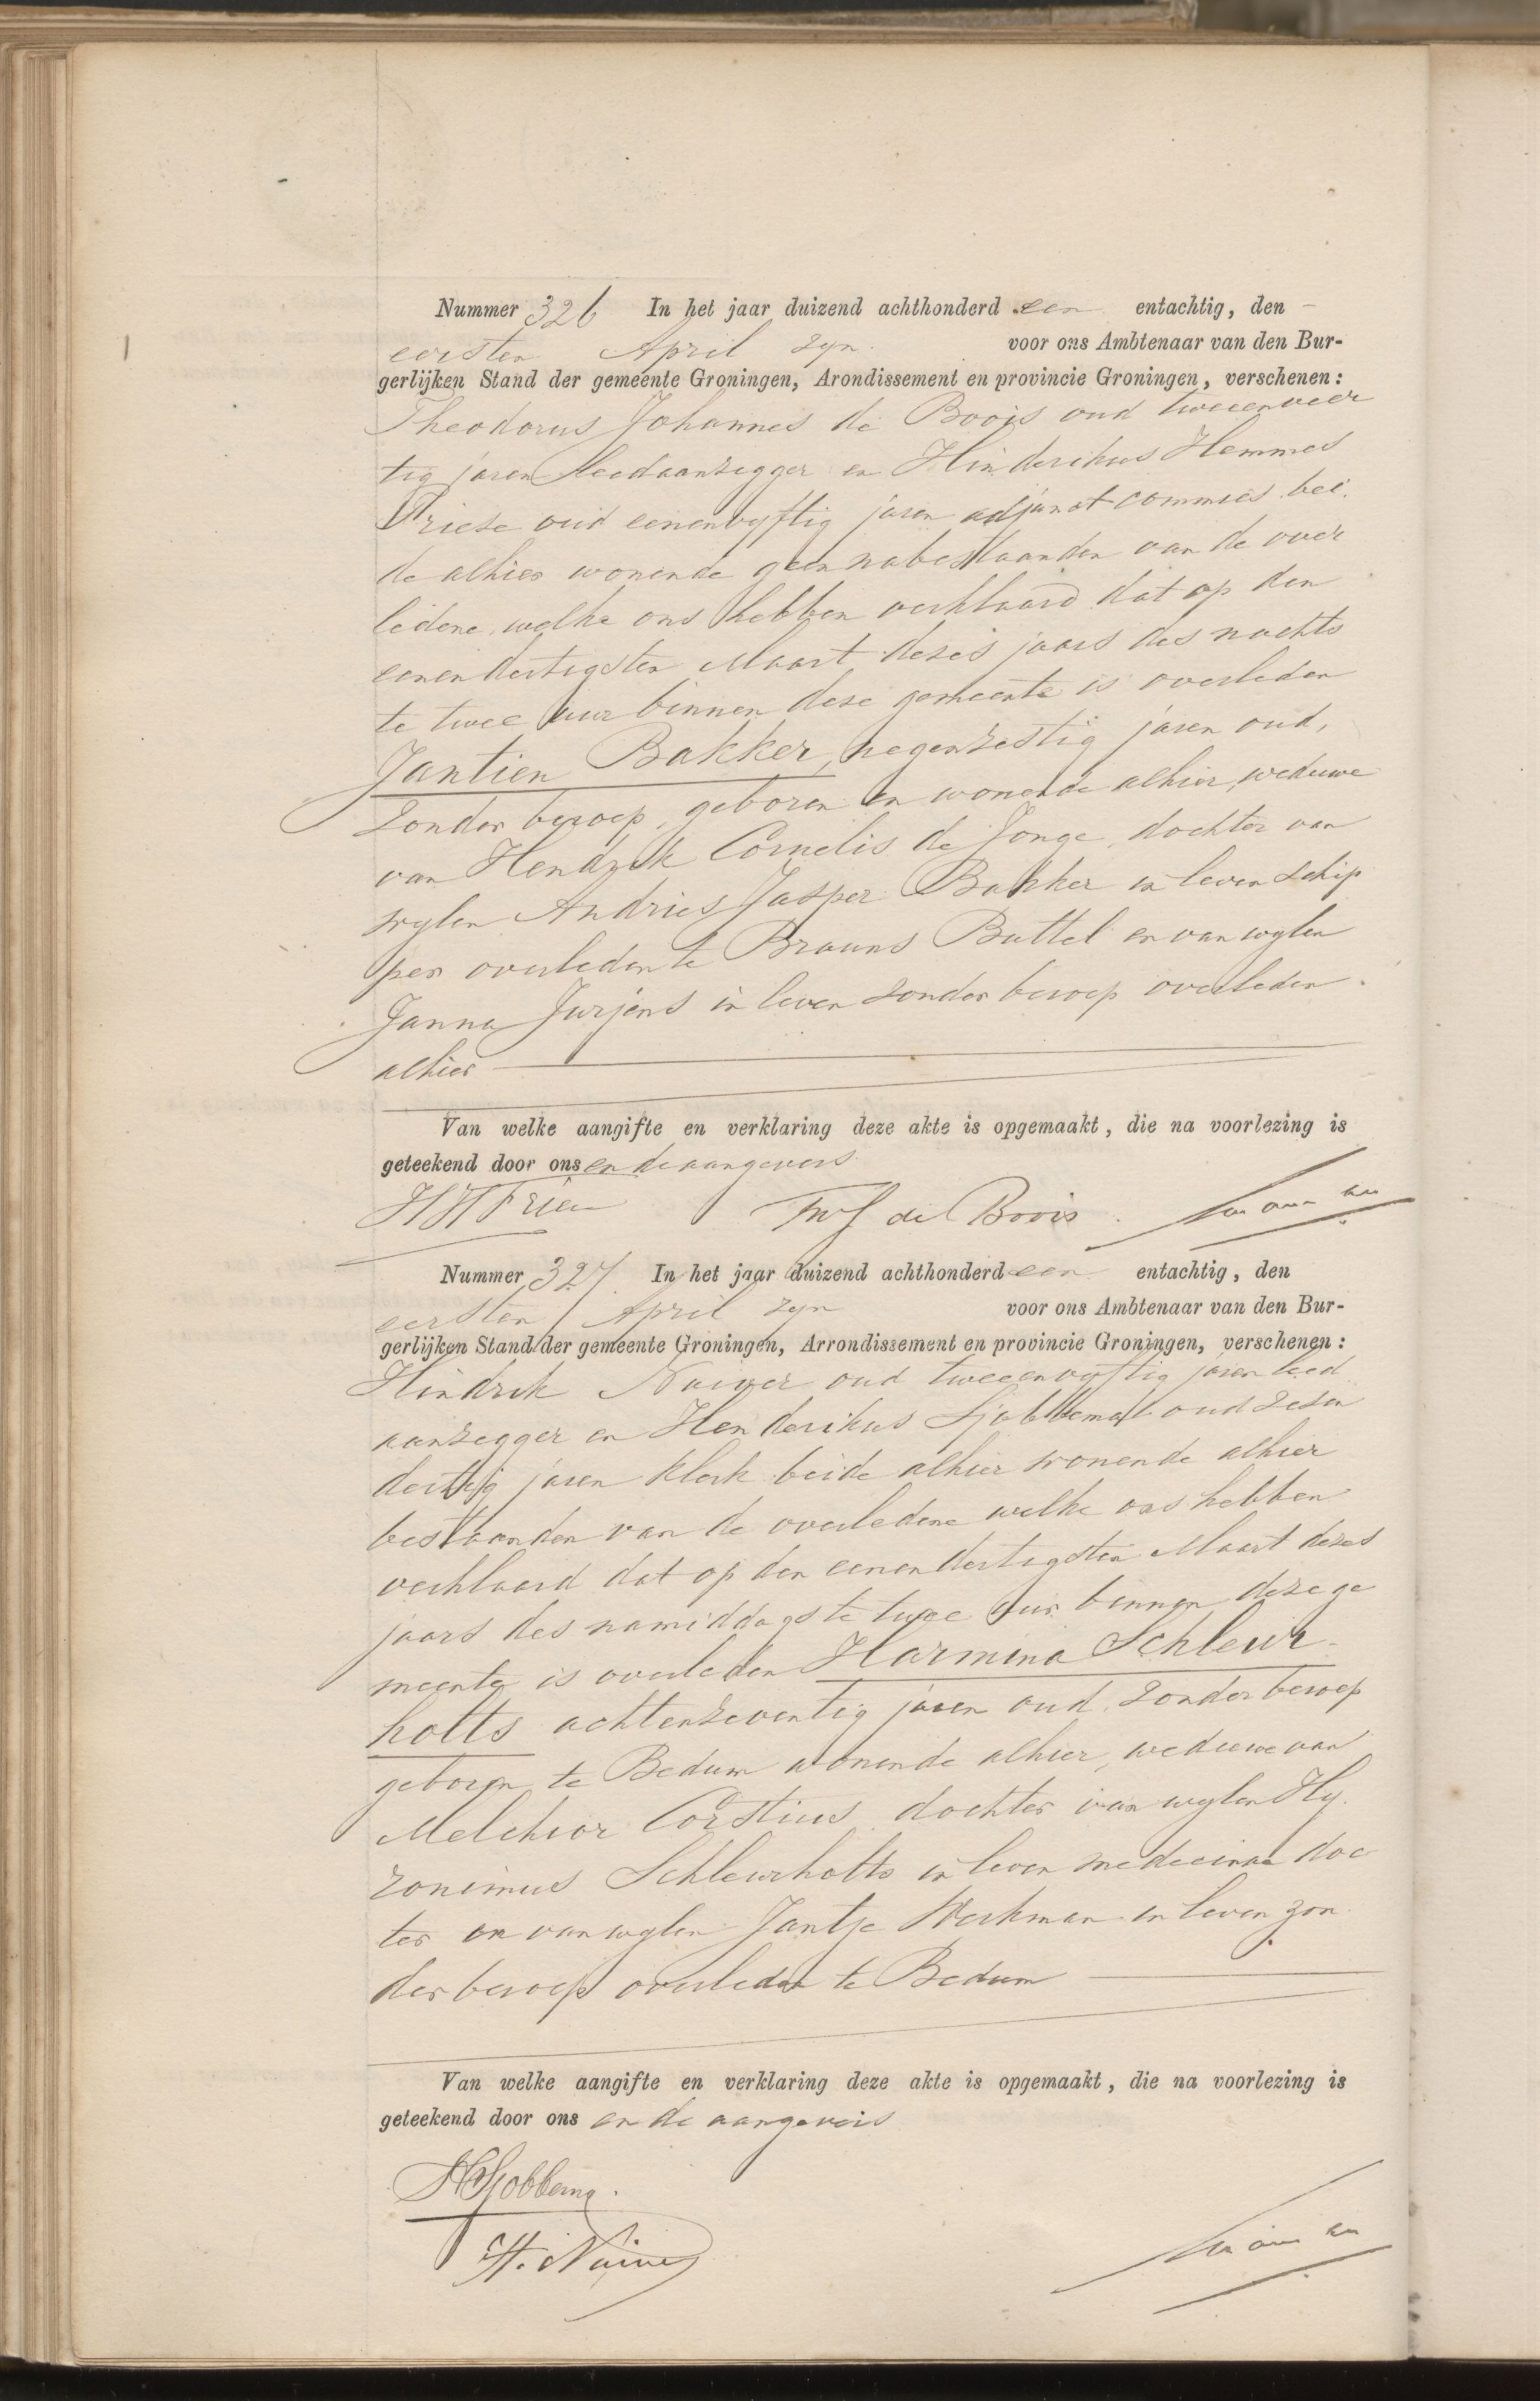 Nummer 326 In het jaar duizend achthonderd een entachtig, den
eersten April zyn voor ons Ambtenaar van den Bur-
gerlijken Stand der gemeente Groningen, Arondissement en provincie Groningen, verschenen:
Theodorus Johannes de Boois oud tweeenveer
tig jaren leedaanzegger en Hinderikus Hemmes
Friese oud eenenvyftig jaren adjunct commies bei
de alhier wonende geen nabestaanden van de over
ledene, welke ons hebben verklaard dat op den
eenendertigsten Maart dezes jaars des nachts
te twee uur binnen deze gemeente is overleden
Jantien Bakker, negenzestig jaren oud,
zonder beroep, geboren en wonende alhier, weduwe
van Hendrik Cornelis de Jonge, dochter van
wylen Andries Jasper Bakker in leven schip
per overleden te Brouns Buttel en van wylen
Janna Jurjens in leven zonder beroep overleden
alhier
Van welke aangifte en verklaring deze akte is opgemaakt, die na voorlezing is
geteekend door ons en de aangevers
HHFriese ThJ de Boois
Nummer 327. In het jaar duizend achthonderd een entachtig, den
eersten April zyn voor ons Ambtenaar van den Bur-
gerlijken Stand der gemeente Groningen, Arrondissement en provincie Groningen, verschenen:
Hindrik Nuiver oud tweeenvyftig jaren leed
aanzegger en Henderikus Sjobbema oud zesen
dertig jaren klerk beide alhier wonende alhier
bestaanden van de overledene welke ons hebben
verklaard dat op den eenendertigsten Maart dezes
jaars des namiddags te twee uur binnen deze ge
meente is overleden Harmina Schleur-
holts achtenzeventig jaren oud, zonder beroep
geboren te Bedum wonende alhier, weduwe van
Melchior Corstius dochter van wylen Hy.
ronimus Schleurholts in leven medecinae doc
ter en van wylen Jantje Werkman in leven zon
der beroep overleden te Bedum
Van welke aangifte en verklaring deze akte is opgemaakt, die na voorlezing is
geteekend door ons en de aangevers
HSjobbema.
H. Nuiver